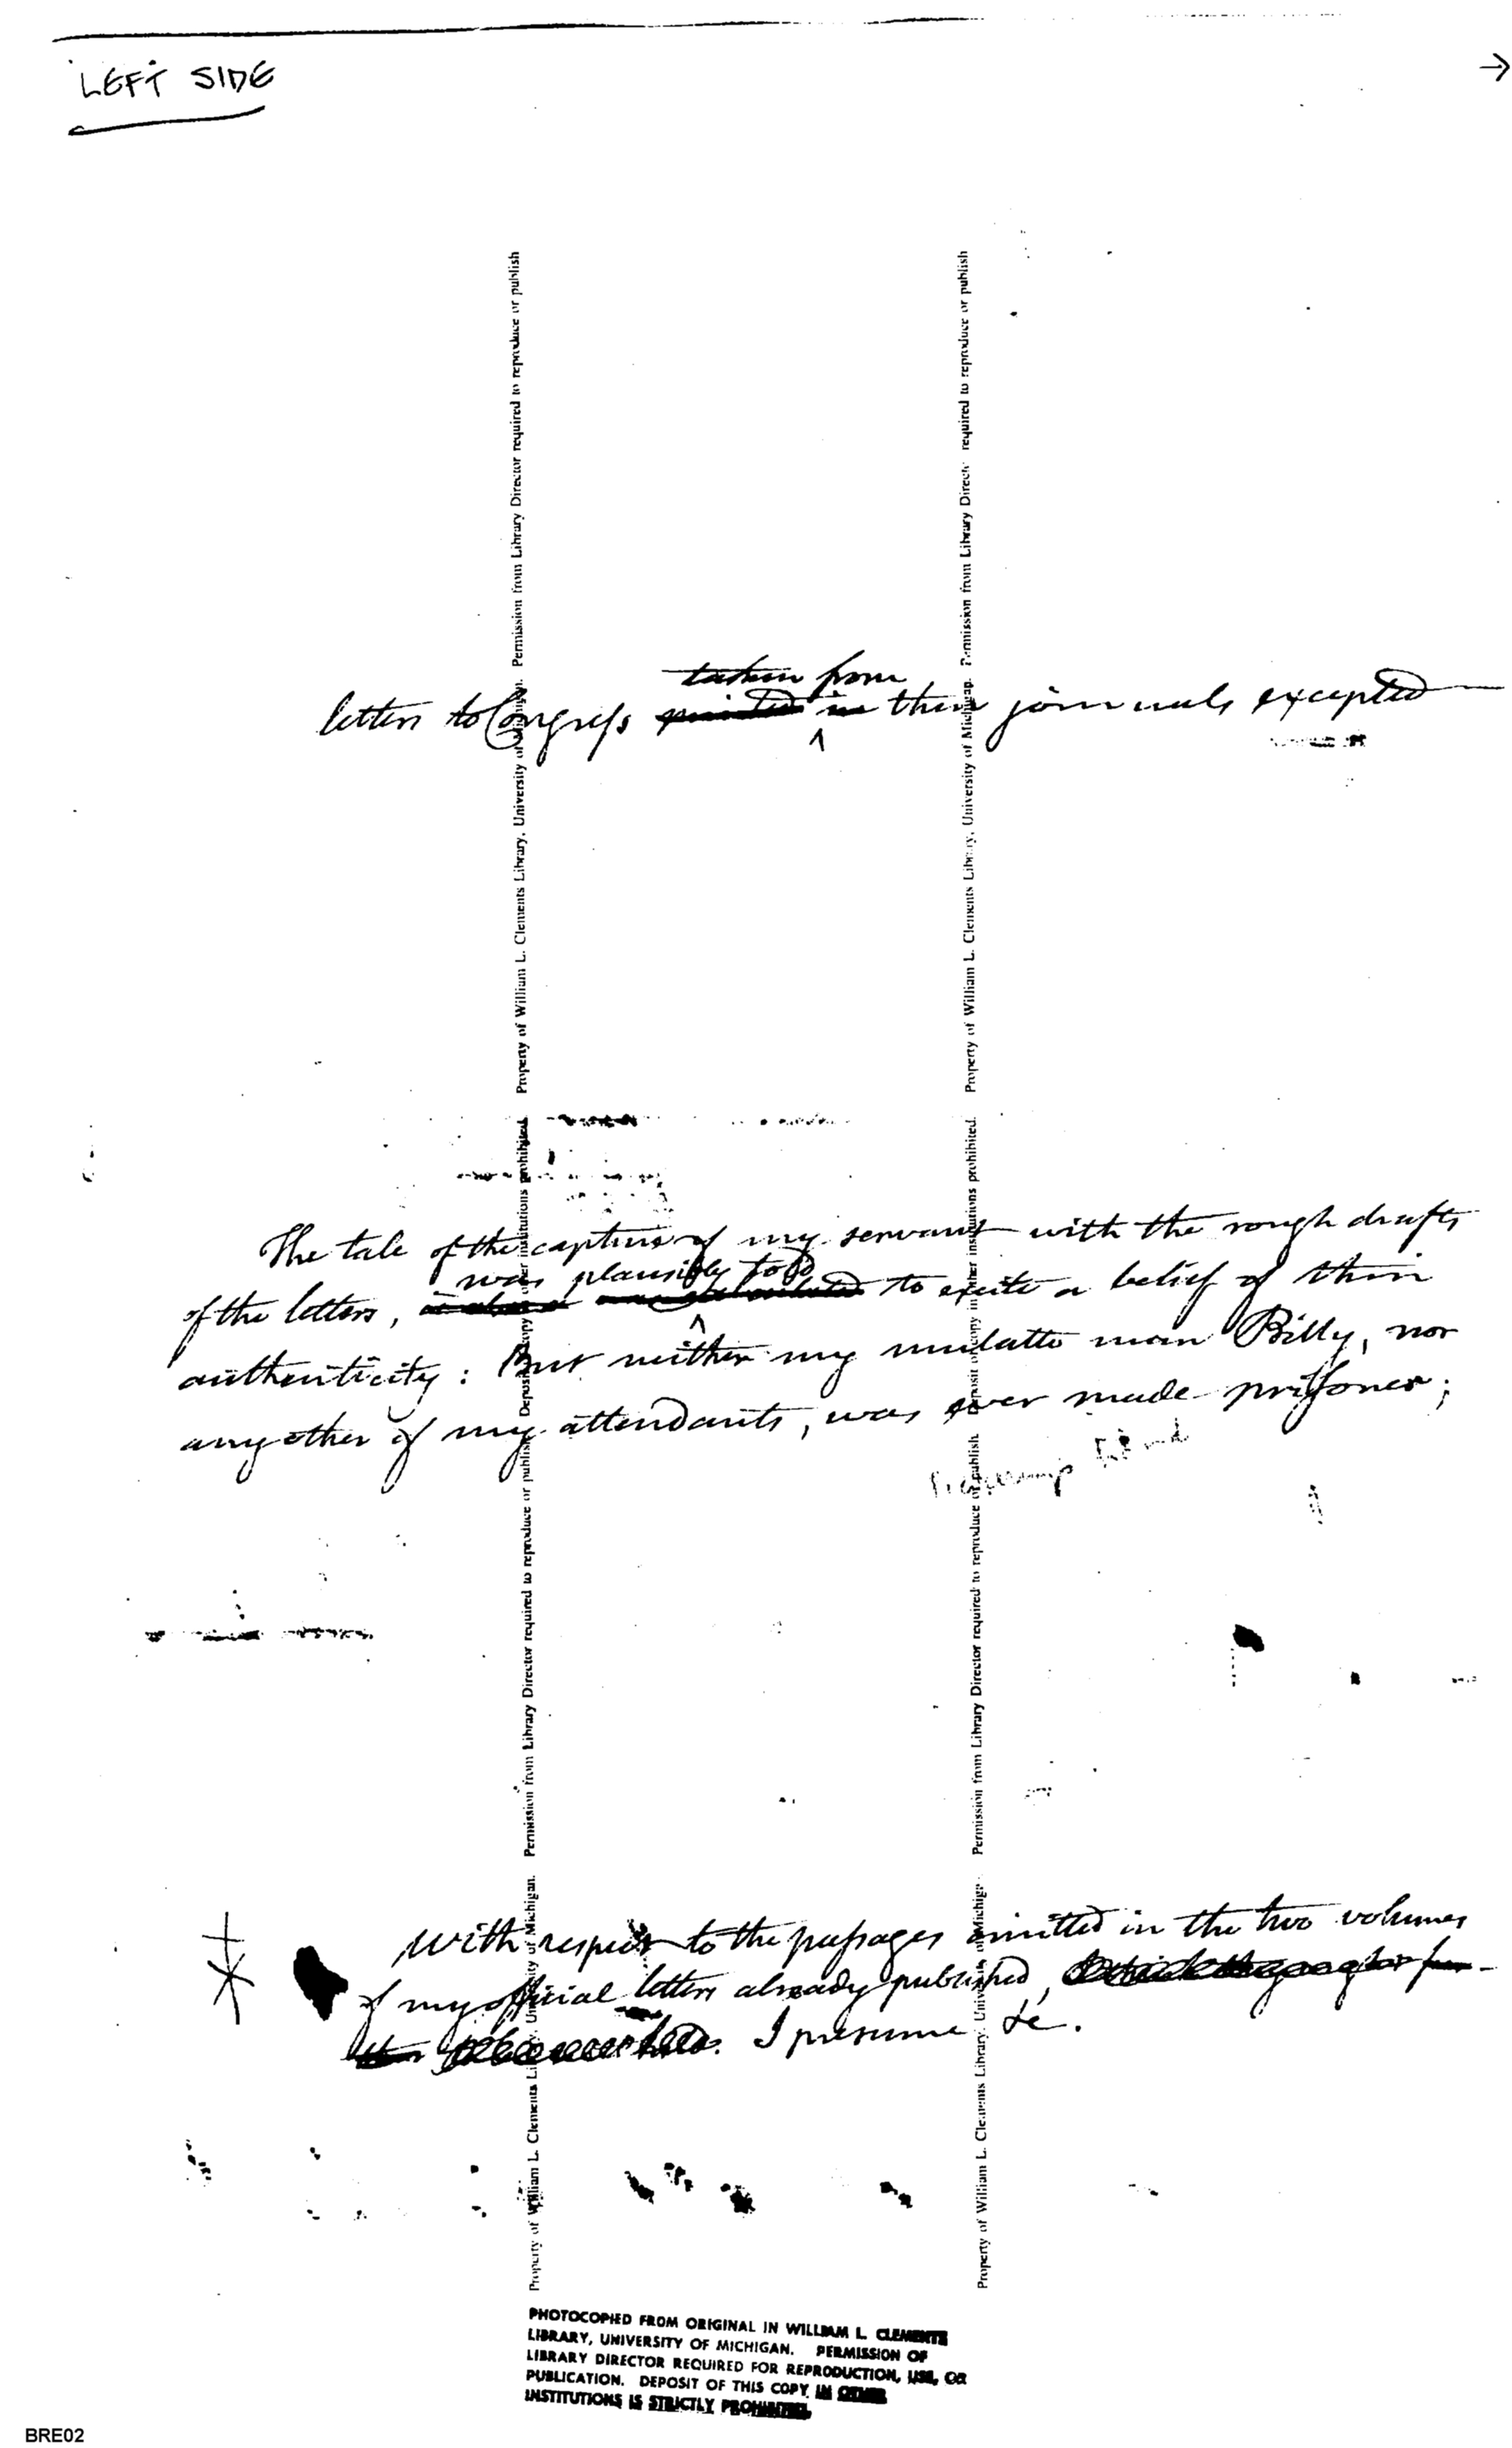 LEFT SIDE →
taken from
letters to Congress printed in their journals excepted
^
The tale of the capture of my servant with the rough drafts
was plausibly told
of the letters, to excite a belief of their
^
authenticity: But neither my mulatto man Billy, nor
any other of my attendants, was ever made prisoner;
With respect to the passages omitted in the two volumes
of my official letters already published,
I presume &c.
Property of William L. Clements Library, University of Michigan. Permission from Library Director required to reproduce or publish
Property of William L. Clements Library, University of Michigan. Permission from Library Director required to reproduce or publish. Deposit of copy in other institutions prohibited.
Property of William L. Clements Library, University of Michigan. Permission from Library Director required to reproduce or publish
Property of William L. Clements Library, University of Michigan. Permission from Library Director required to reproduce or publish. Deposit of copy in other institutions prohibited.
PHOTOCOPIED FROM ORIGINAL IN WILLIAM L. CLEMENTS
LIBRARY, UNIVERSITY OF MICHIGAN. PERMISSION OF
LIBRARY DIRECTOR REQUIRED FOR REPRODUCTION, USE, OR
PUBLICATION. DEPOSIT OF THIS COPY IN OTHER
INSTITUTIONS IS STRICTLY PROHIBITED.
BRE02